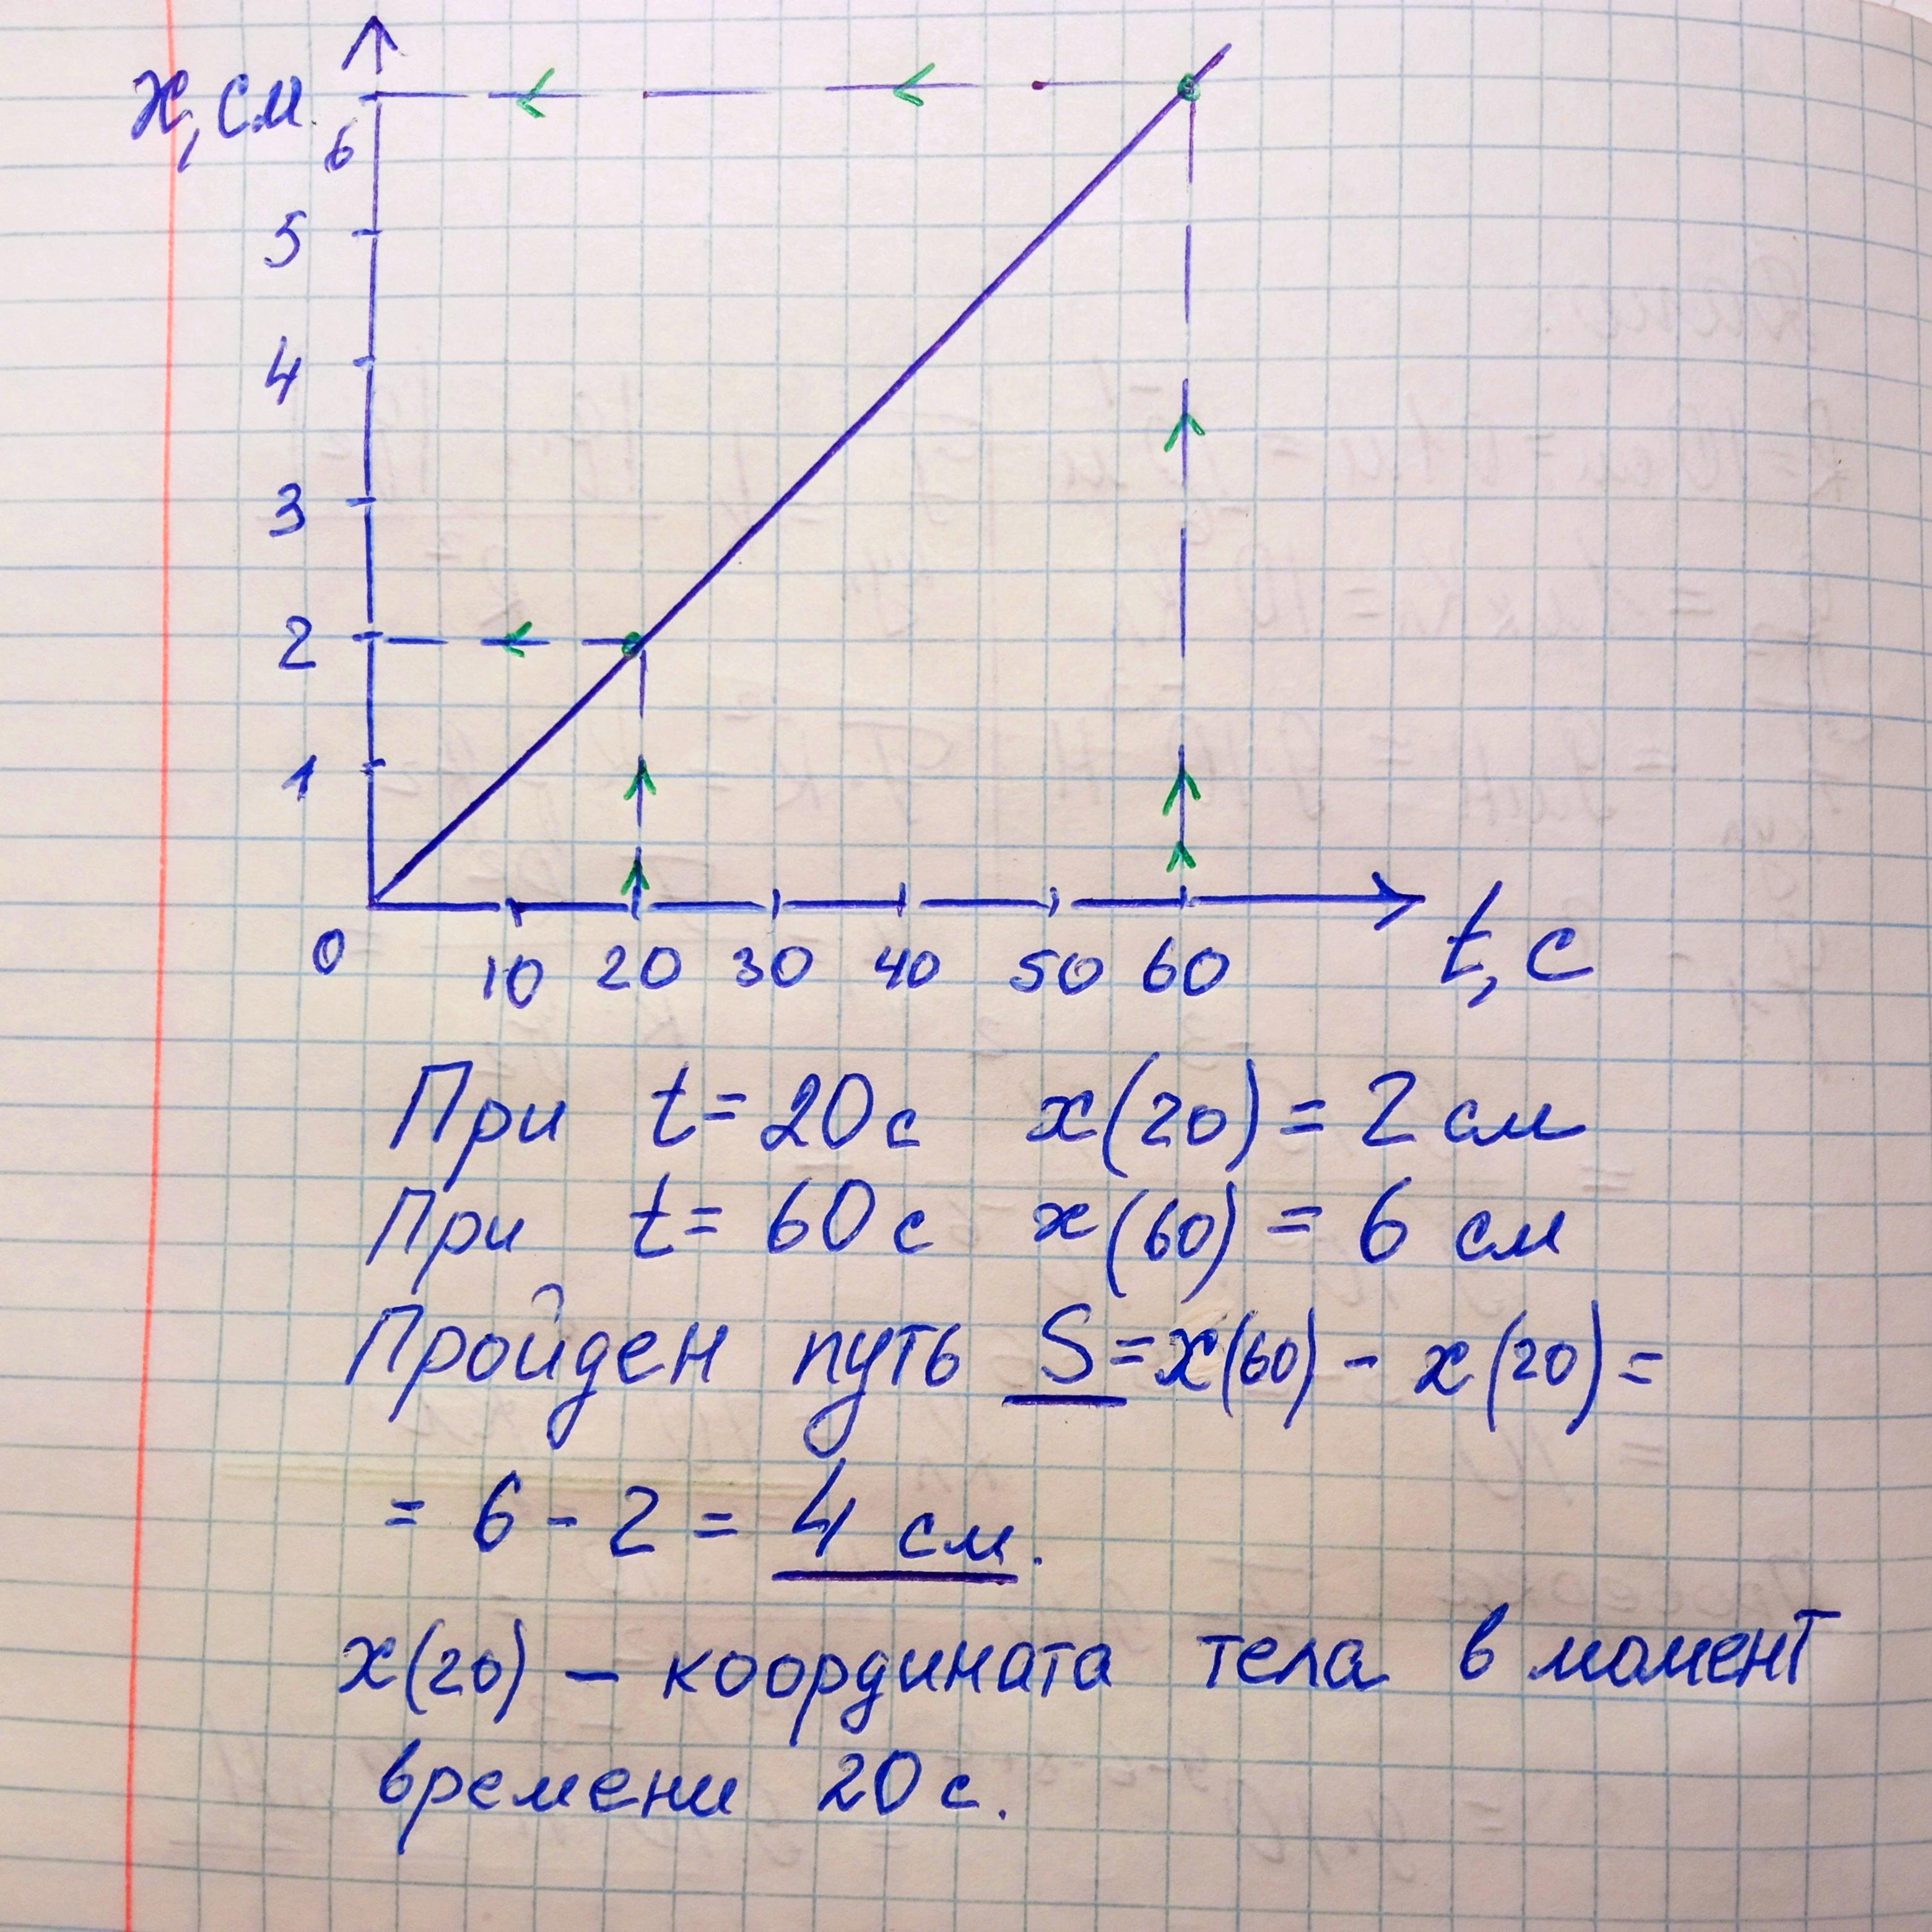 x, см
6
5
4
3
2
1
0
10 20 30 40 50 60
t, с
При t = 20 с x(20) = 2 см
При t = 60 с x(60) = 6 см
Пройден путь S = x(60) - x(20) =
= 6 - 2 = 4 см.
x(20) – координата тела в момент
времени 20 с.